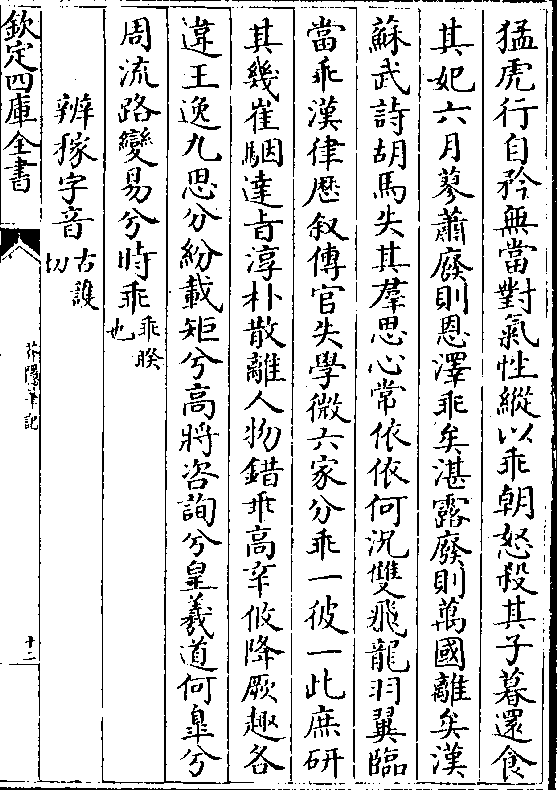 猛虎行自矜無當對氣性縱以乖朝怒殺其子暮還食
其妃六月蓼蕭廢則恩澤乖矣湛露廢則萬國離矣漢
蘇武詩胡馬失其羣思心常依依何況雙飛龍羽翼臨
當乖漢律歷叙傳官失學微六家分乖一彼一此庶研
其幾崔駰達旨淳朴散離人物錯乖高辛攸降厥趣各
違王逸九思分紛載矩兮高將咨詢兮皇羲道何臯兮
周流路變易兮時乖乖睽也
辨稼字音古護切
欽定四庫全書
芥隱筆記
十二